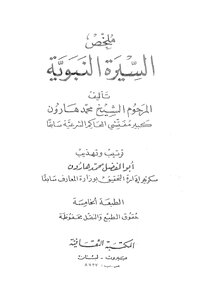 ملخص
السيرة النبوية
تأليف
المرحوم الشيخ محمد هارون
كبير مفتشي المحاكم الشرعية سابقا
ترتيب وتهذيب
أبو الفضل محمد هارون
سكرتير إدارة التحقيق بوزارة المعارف سابقا
الطبعة الخامسة
حقوق الطبع والنقل محفوظة
المكتبة الثقافية
بيروت - لبنان